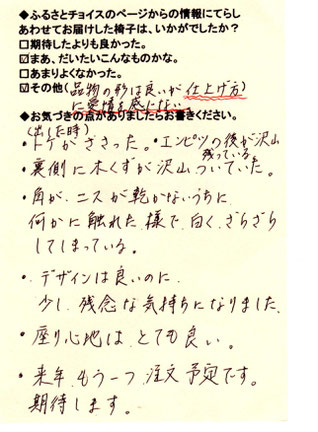 ◆ふるさとチョイスのページからの情報にてらし
あわせてお届けした椅子は、いかがでしたか?
□期待したよりも良かった。
☑まあ、だいたいこんなものかな。
□あまりよくなかった。
☑その他(品物の形は良いが仕上げ方
に愛情を感じない。)
◆お気づきの点がありましたらお書きください。
(出した時)
・トゲがささった。・エンピツの後が沢山
残っている
・裏側に木くずが沢山ついていた。
・角が、ニスが乾かないうちに
何かに触れた様で、白く、ざらざら
してしまっている。
・デザインは良いのに、
少し、残念な気持ちになりました
・座り心地は、とても良い。
・来年、もう一つ、注文予定です。
期待します。